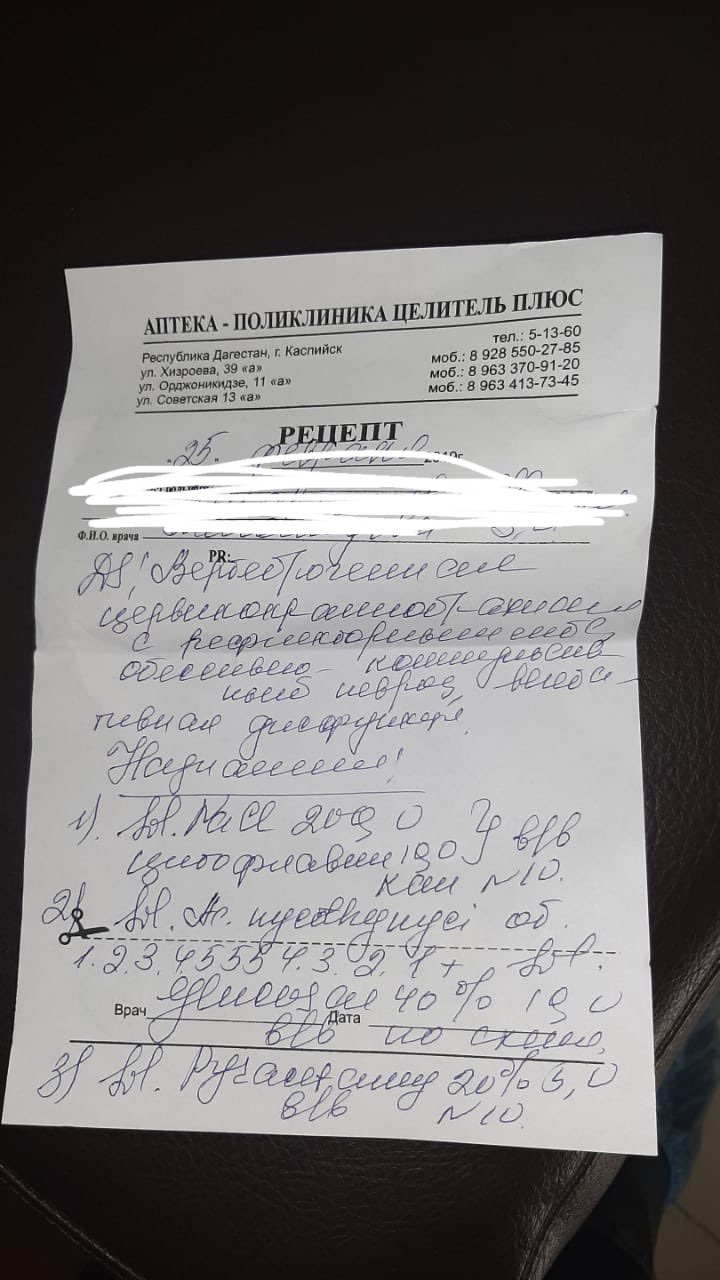 АПТЕКА - ПОЛИКЛИНИКА ЦЕЛИТЕЛЬ ПЛЮС
Республика Дагестан, г. Каспийск
ул. Хизроева, 39 «а»
ул. Орджоникидзе, 11 «а»
ул. Советская 13 «а»
тел.: 5-13-60
моб.: 8 928 550-27-85
моб.: 8 963 370-91-20
моб.: 8 963 413-73-45
РЕЦЕПТ
"25" февраля
Ф.И.О. врача
PR:
DS! Вертеброгенная
цервикокраниобрахиалгия
с рефлекторными
невроз, вегета-
тивная дисфункция.
Назначения!
1). Sol. NaCl 200,0
цитофлавин 10,0 } в/в
кап N10.
2) Sol. Ac.
1. 2. 3. 4 5 5 5 4. 3. 2. 1 + Sol.
40% 10,0
Врач Дата
в/в по схеме.
3) Sol. 20% 5,0
в/в N10.